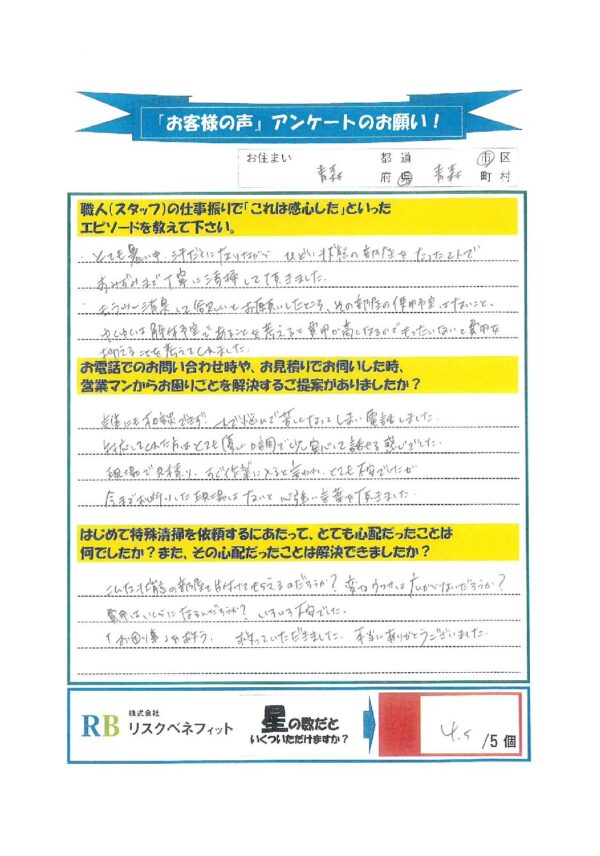 『お客様の声』アンケートのお願い！
お住まい 青森 都 道 府 県 青森 市 区 町 村
職人（スタッフ）の仕事振りで「これは感心した」といった
エピソードを教えて下さい。
・とても暑い中、汗だくになりながら ひどい状態の部屋を たった2人で
すみずみまで丁寧に清掃して頂きました。
・もう一 消臭して欲しいとお願いしたところ、その部屋の使用予定はないこと、
解体予定であることを考えると費用が高くなるのでもったいないと費用を
抑えることを考えてくれました。
お電話でのお問い合わせ時や、お見積りでお伺いした時、
営業マンからお困りごとを解決するご提案がありましたか？
誰にも相談できず、1人で悩んで苦しくなってしまい電話しました。
対応してくれた方はとても優しい口調で安心して話せる感じでした。
現場で見積り、すぐ作業に入ると言われ、とても不安でしたが
今までお断りした現場はないと心強い言葉を頂きました。
はじめて特殊清掃を依頼するにあたって、とても心配だったことは
何でしたか？また、その心配だったことは解決できましたか？
こんな状態の部屋を片付けてもらえるのだろうか？変なウワサは広がらないだろうか？
費用はいくらになるんだろうか？いろいろ不安でした。
「お困り事」を救う、 救っていただきました。本当にありがとうございました。
RB 株式会社
リスクベネフィット
星の数だと
いくついただけますか？
4.5 /5個